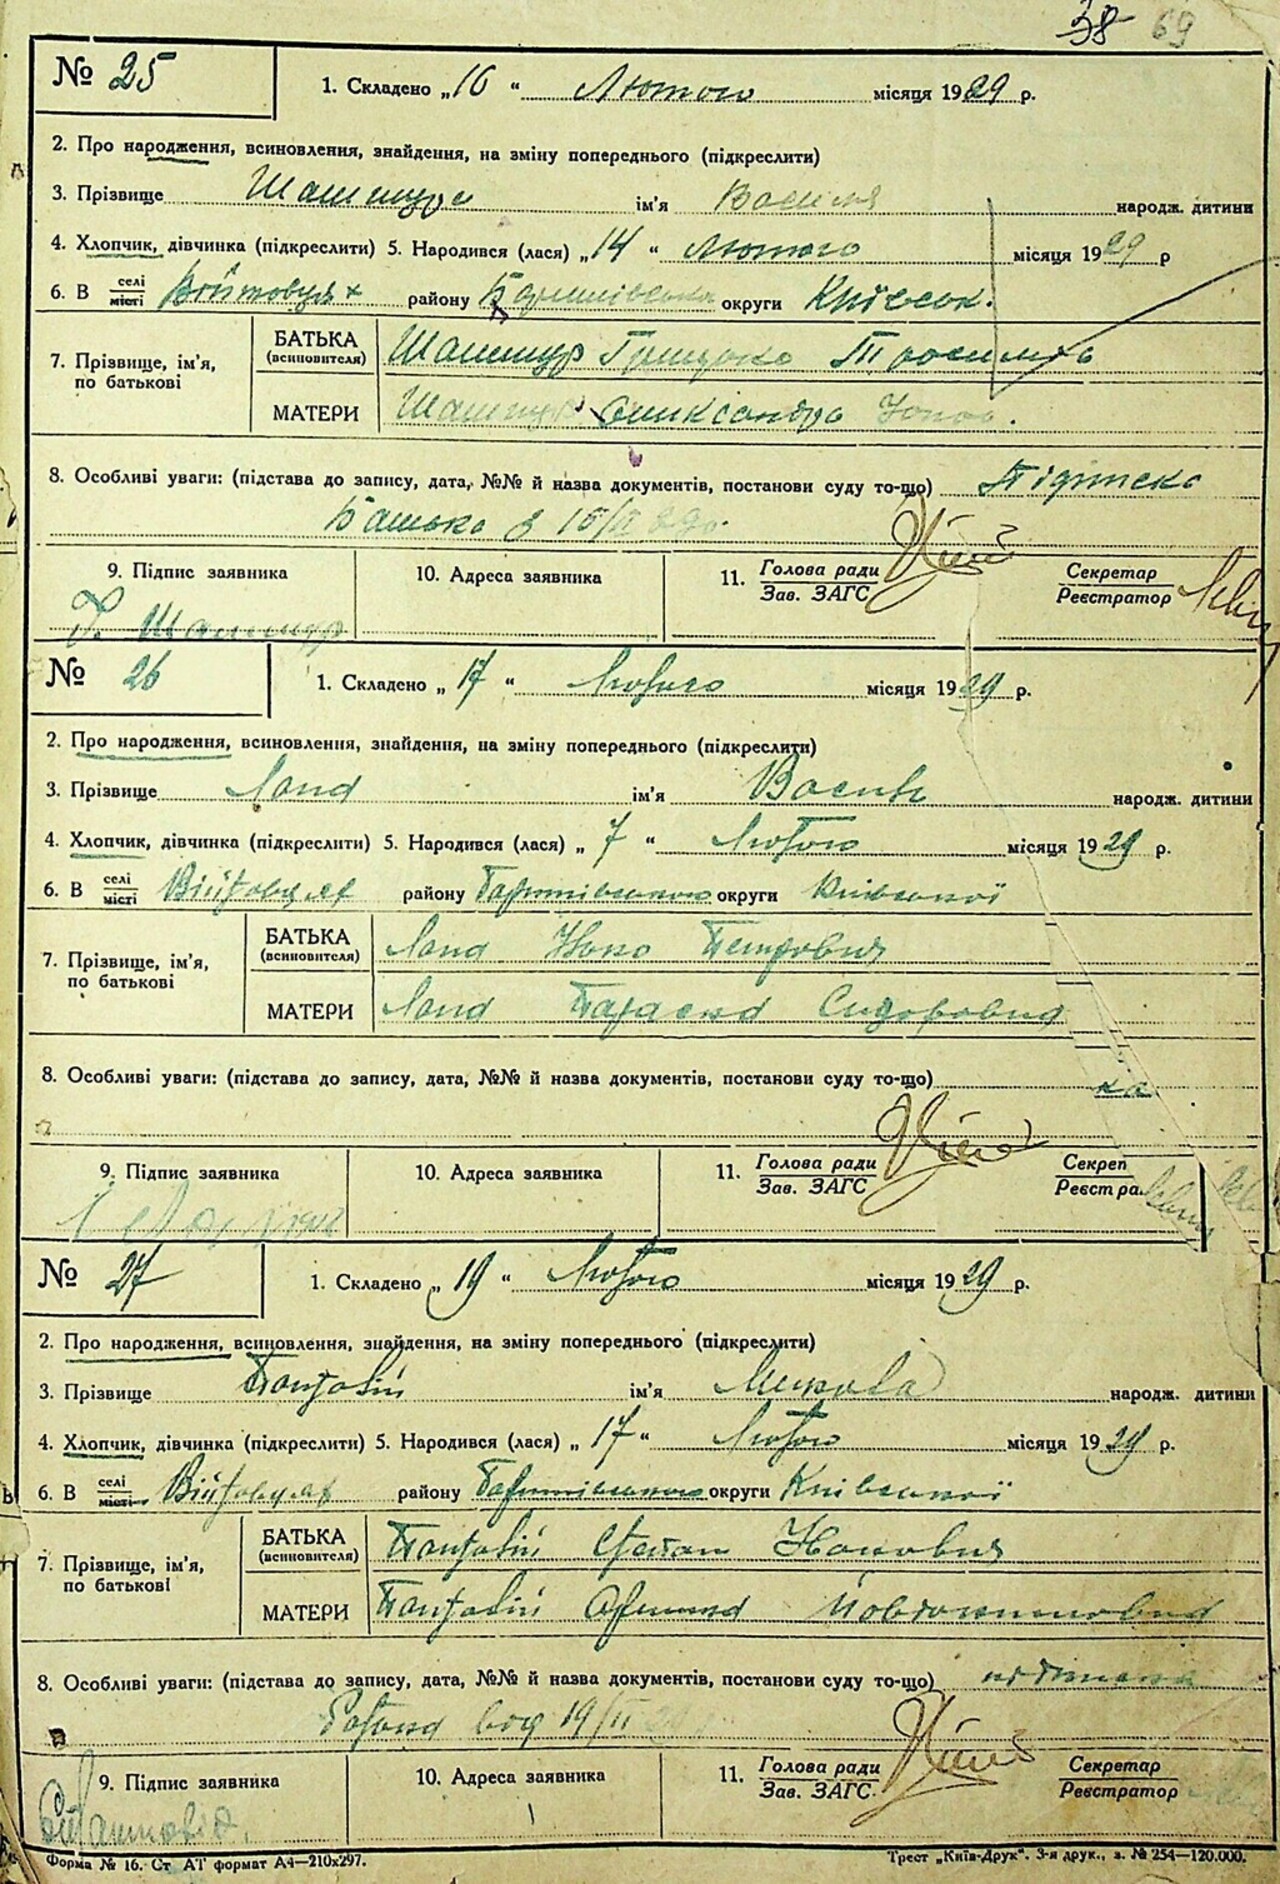 38 69
№ 25 1. Складено „16“ Лютого місяця 1929 р.
2. Про народження, всиновлення, знайдення, на зміну попереднього (підкреслити)
3. Прізвище Шашшура ім'я Василя народж. дитини
4. Хлопчик, дівчинка (підкреслити) 5. Народився (лася) „14“ Лютого місяця 1929 р
6. В селі/місті району округи Київськ.
7. Прізвище, ім'я, по батькові БАТЬКА (всиновителя)
МАТЕРИ
8. Особливі уваги: (підстава до запису, дата, №№ й назва документів, постанови суду то-що) Підписка
Батька з 15/II 29р.
9. Підпис заявника 10. Адреса заявника 11. Голова ради Зав. ЗАГС Секретар Реєстратор
№ 26 1. Складено „17“ Лютого місяця 1929 р.
2. Про народження, всиновлення, знайдення, на зміну попереднього (підкреслити)
3. Прізвище Лапа ім'я Василь народж. дитини
4. Хлопчик, дівчинка (підкреслити) 5. Народився (лася) „7“ Лютого місяця 1929 р.
6. В селі/місті Війтовцях району округи Київської
7. Прізвище, ім'я, по батькові БАТЬКА (всиновителя) Лапа Петрович
МАТЕРИ Лапа Параска Сидоровна
8. Особливі уваги: (підстава до запису, дата, №№ й назва документів, постанови суду то-що)
9. Підпис заявника 10. Адреса заявника 11. Голова ради Зав. ЗАГС Секреп Реєстра
№ 27 1. Складено „19“ Лютого місяця 1929 р.
2. Про народження, всиновлення, знайдення, на зміну попереднього (підкреслити)
3. Прізвище Пантовій ім'я Микола народж. дитини
4. Хлопчик, дівчинка (підкреслити) 5. Народився (лася) „17“ Лютого місяця 1929 р.
6. В селі/місті Війтовцях району округи Київської
7. Прізвище, ім'я, по батькові БАТЬКА (всиновителя) Пантовій Степан
МАТЕРИ Пантовій
8. Особливі уваги: (підстава до запису, дата, №№ й назва документів, постанови суду то-що) підписка
від 19/II
9. Підпис заявника 10. Адреса заявника 11. Голова ради Зав. ЗАГС Секретар Реєстратор
Форма № 16. Ст АТ формат А4—210х297. Трест „Київ-Друк“. 3-я друк., з. № 254—120.000.